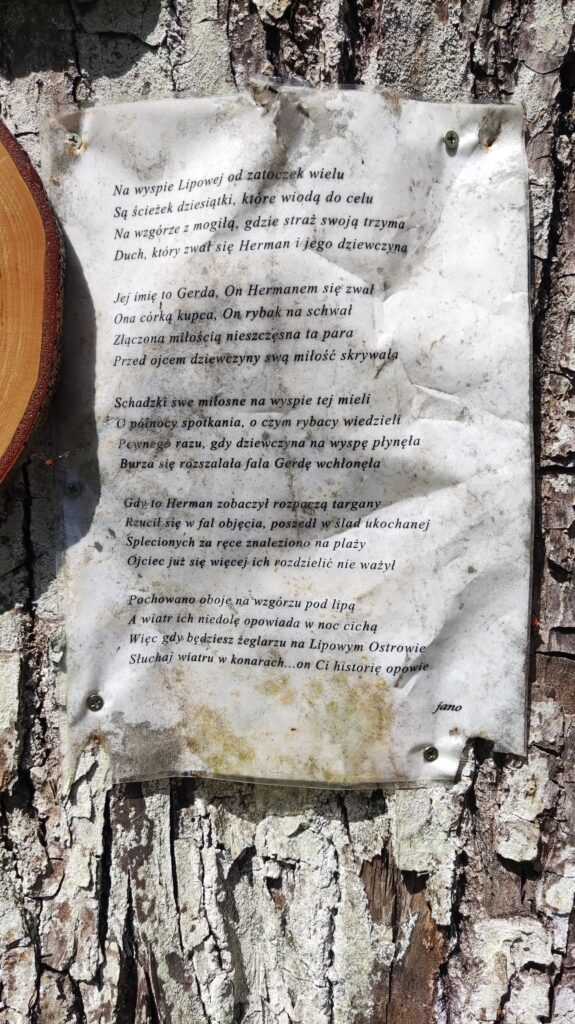 Na wyspie Lipowej od zatoczek wielu
Są ścieżek dziesiątki, które wiodą do celu
Na wzgórze z mogiłą, gdzie straż swoją trzyma
Duch, który zwał się Herman i jego dziewczyna
Jej imię to Gerda, On Hermanem się zwał
Ona córką kupca, On rybak na schwał
Złączona miłością nieszczęsna ta para
Przed ojcem dziewczyny swą miłość skrywała
Schadzki swe miłosne na wyspie tej mieli
O północy spotkania, o czym rybacy wiedzieli
Pewnego razu, gdy dziewczyna na wyspę płynęła
Burza się rozszalała fala Gerdę wchłonęła
Gdy to Herman zobaczył rozpaczą targany
Rzucił się w fal objęcia, poszedł w ślad ukochanej
Splecionych za ręce znaleziono na plaży
Ojciec już się więcej ich rozdzielić nie ważył
Pochowano oboje na wzgórzu pod lipą
A wiatr ich niedolę opowiada w noc cichą
Więc gdy będziesz żeglarzu na Lipowym Ostrowie
Słuchaj wiatru w konarach...on Ci historię opowie
jano